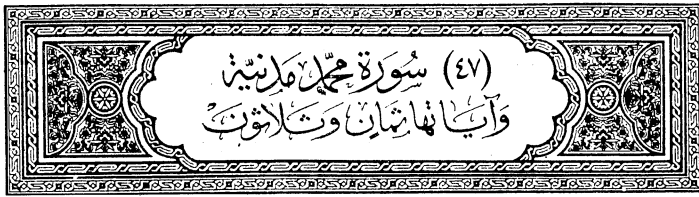 (٤٧) سُورَة مُحَمَّد مَدَنِيَّة
وَآيَاتهَا ثَمَانٍ وَثَلَاثُونَ